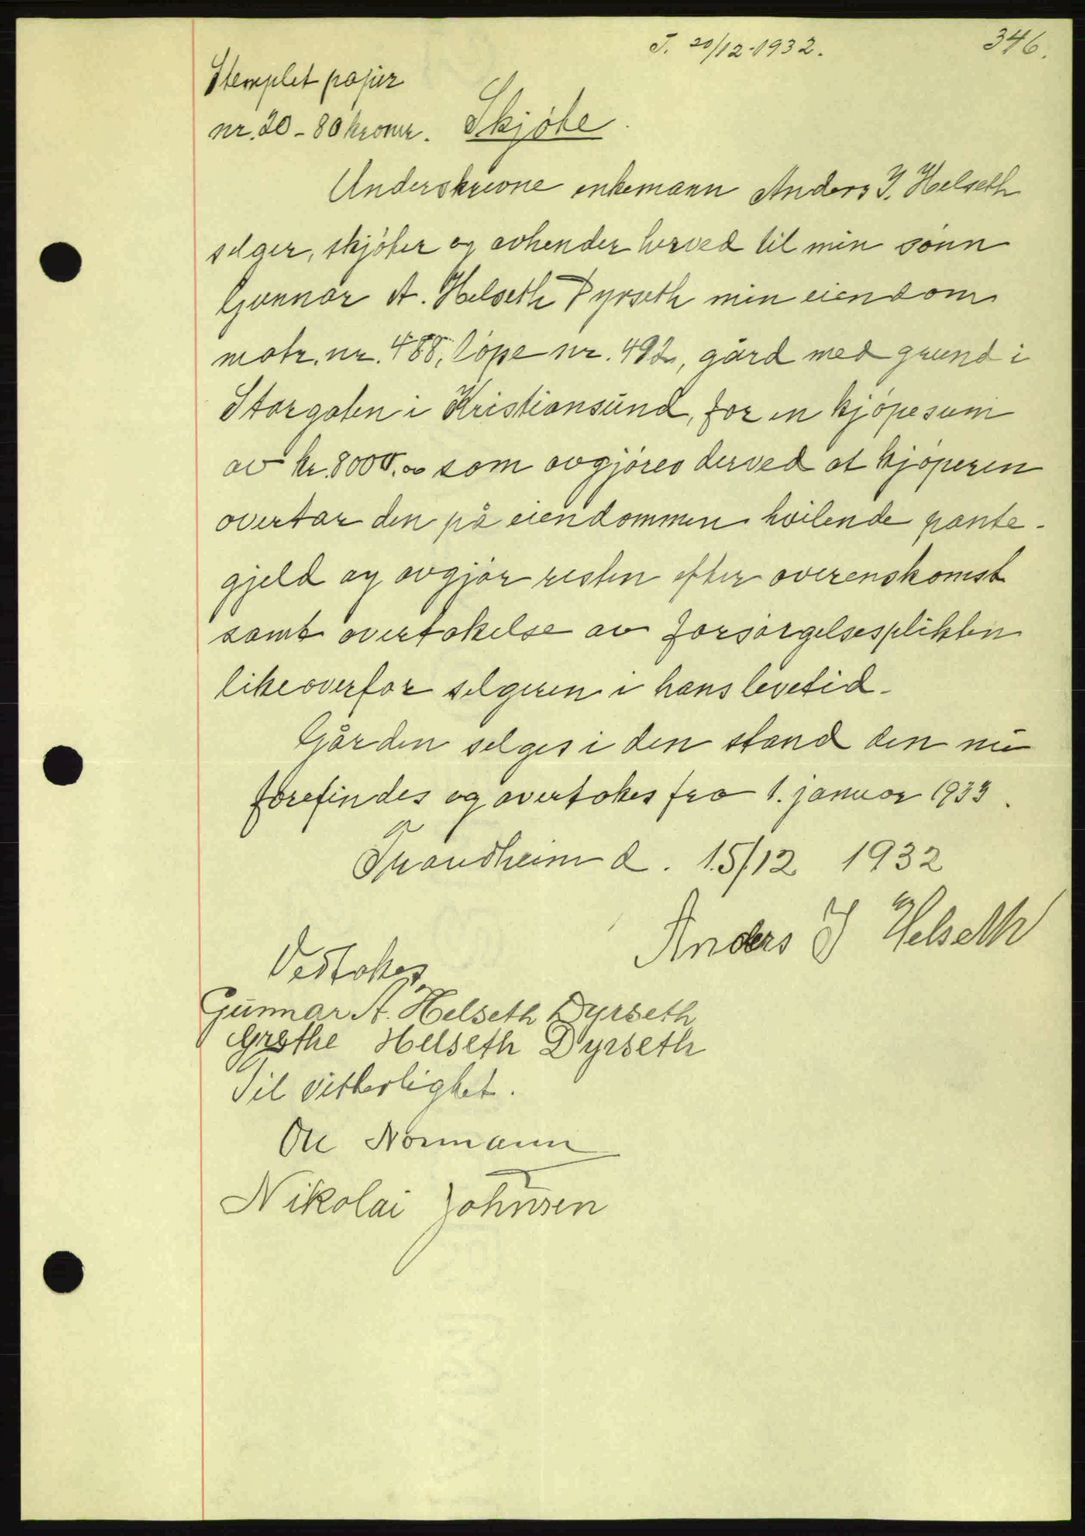 T. 20/12-1932. 346.
Stemplet papir
nr. 20 - 80 kroner. Skjøte
Underskrevne enkemann Anders I. Helseth
selger, skjøter og avhender herved til min sønn
Gunnar A. Helseth Dyrseth min eiendom
matr. nr. 488, løpe nr. 492, gård med grund i
Storgaten i Kristiansund, for en kjøpesum
av kr. 8000.00 som avgjøres derved at kjøperen
overtar den på eiendommen hvilende pante-
gjeld og avgjør resten efter overenskomst
samt overtakelse av forsørgelsesplikten
likeoverfor selgeren i hans levetid.
Gården selges i den stand den nu
forefindes og overtakes fra 1. januar 1933.
Trondheim d. 15/12 1932
Anders I Helseth
Vedtakes
Gunnar A. Helseth Dyrseth
Grethe Helseth Dyrseth
Til vitterlighet.
Ole Normann
Nikolai Johnsen